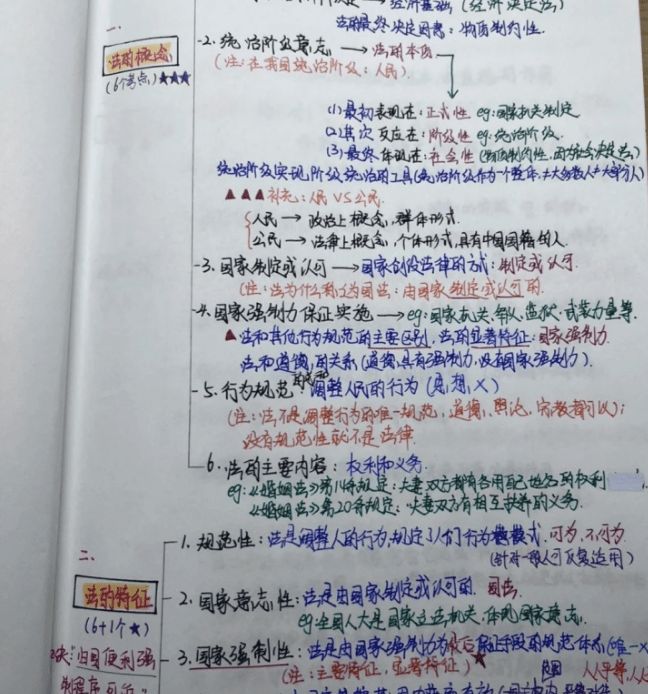 经济基础（经济决定法）
法的最终决定因素：物质制约性.
一.
法的概念
（6个考点）★★★
2. 统治阶级意志 → 法的本质
（注：在我国统治阶级：人民）
(1) 最初表现在：正式性 eg：国家机关制定
(2) 其次 反应在：阶级性 eg：统治阶级.
(3) 最终 体现在：社会性（物质制约性，
统治阶级实现阶级统治的工具（统治阶级作为一个整体，≠大多数人≠大部分人）
▲▲▲补充：人民 VS 公民.
人民 → 政治上概念，群体形式.
公民 → 法律上概念，个体形式，具有中国国籍的人.
3. 国家制定或认可 → 国家创设法律的方式：制定或认可.
（注：法为什么称之为国法：由国家制定或认可的.
4. 国家强制力保证实施 → eg：国家机关、军队、监狱、武装力量等.
▲法和其他行为规范的主要区别，法的显著特征：国家强制力.
法和道德的关系（道德具有强制力，没有国家强制力）.
5. 行为规范：调整人民的行为（思想 ×）
（注：法不是调整行为的唯一规范，道德、舆论、宗教都可以）；
没有规范性就不是法律.
6. 法的主要内容：权利和义务.
eg：《婚姻法》第14条规定：夫妻双方都有各用自己姓名的权利
《婚姻法》第20条规定：夫妻双方有相互扶养的义务.
二.
法的特征
（6+1个★）
1. 规范性：法是调整人的行为，规定了人们行为模式，可为、不可为.
（针对一般人可反复适用）
2. 国家意志性：法是由国家制定或认可的. 国法.
eg 全国人大是国家立法机关，体现国家意志.
3. 国家强制性：法是由国家强制力为最后保证手段的规范体系（唯一×
（注：主要特征，显著特征）★
归国便利强
制程序可
人人平等，人人